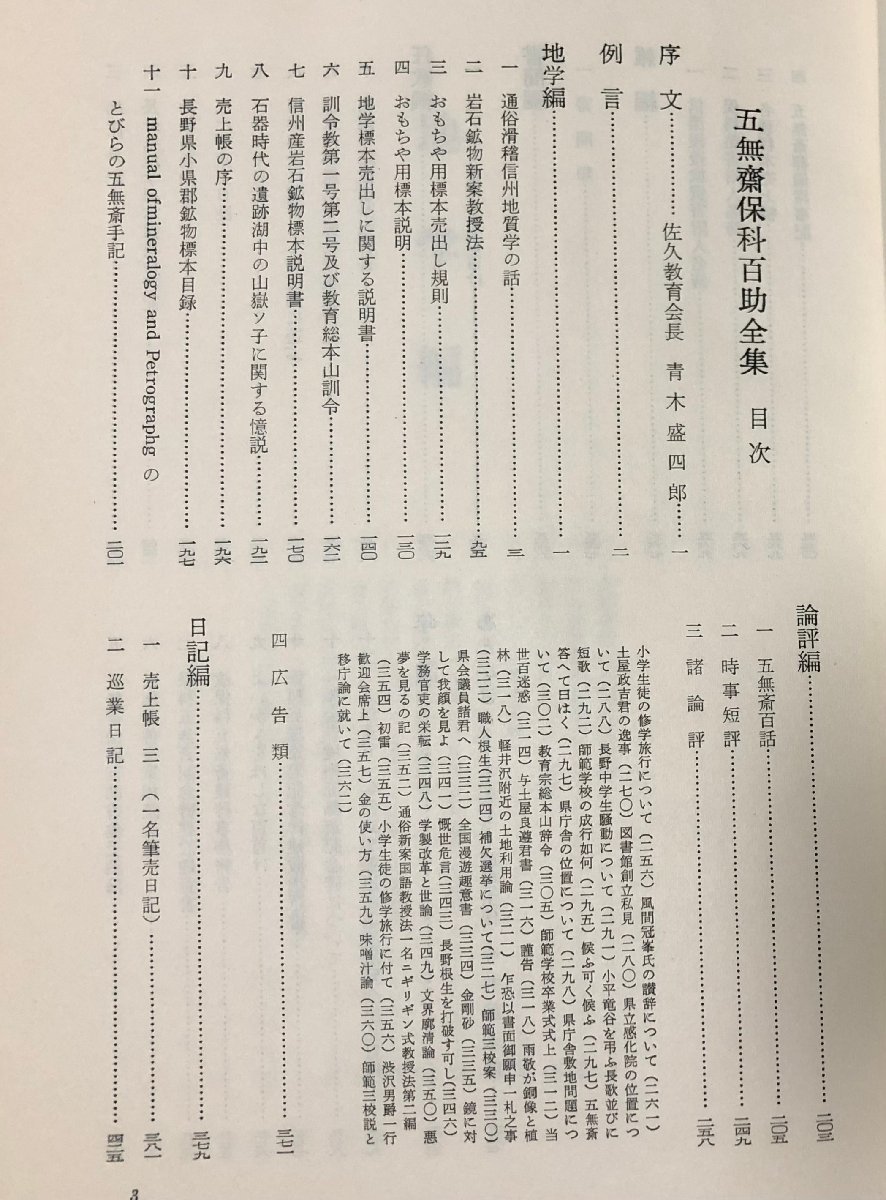 五無齋保科百助全集　目次
序文…………佐久教育会長　青木盛四郎……一
例言……二
地学編……一
一　通俗滑稽信州地質学の話……三
二　岩石鉱物新案教授法……九五
三　おもちや用標本売出し規則……一二九
四　おもちや用標本説明……一三〇
五　地学標本売出しに関する説明書……一四〇
六　訓令教第一号第二号及び教育総本山訓令……一六二
七　信州産岩石鉱物標本説明書……一七〇
八　石器時代の遺跡湖中の山嶽ソ子に関する憶説……一九二
九　売上帳の序……一九六
十　長野県小県郡鉱物標本目録……一九七
十一　manual ofmineralogy and Petrographg の
とびらの五無斎手記……二〇一
論評編……二〇三
一　五無斎百話……二〇五
二　時事短評……二四九
三　諸論評……二五八
小学生徒の修学旅行について（二五六）風間冠峯氏の讃辞について（二六一）
土屋政吉君の逸事（二七〇）図書館創立私見（二八〇）県立感化院の位置につ
いて（二八八）長野中学生騒動について（二九一）小平竜谷を弔ふ長歌並びに
短歌（二九二）師範学校の成行如何（二九五）候ふ可く候ふ（二九七）五無斎
答へて曰はく（二九七）県庁舎の位置について（二九八）県庁舎敷地問題につ
いて（三〇二）教育宗総本山辞令（三〇五）師範学校卒業式上（三一一）当
世百迷惑（三一四）与土屋良遵君書（三一六）謹告（三一八）雨敬が銅像と植
林（三一八）軽井沢附近の土地利用論（三二一）乍恐以書面御願申一札之事
（三二二）職人根生（三二四）補欠選挙について（三二七）師範三校案（三三〇）
県会議員諸君へ（三三二）全国漫遊趣意書（三三四）金剛砂（三三五）鏡に対
して我顔を見よ（三四一）慨世危言（三四三）長野根生を打破す可し（三四六）
学務官吏の栄転（三四八）学製改革と世論（三四九）文界廓清論（三五〇）悪
夢を見るの記（三五二）通俗新案国語教授法一名ニギリギン式教授法第二編
（三五四）初雷（三五五）小学生徒の修学旅行に付て（三五六）渋沢男爵一行
歓迎会席上（三五七）金の使い方（三五九）味噌汁論（三六〇）師範三校説と
移庁論に就いて（三六二）
四　広告類……三七一
日記編……三七九
一　売上帳　三　（一名筆売日記）……三八一
二　巡業日記……四二五
3